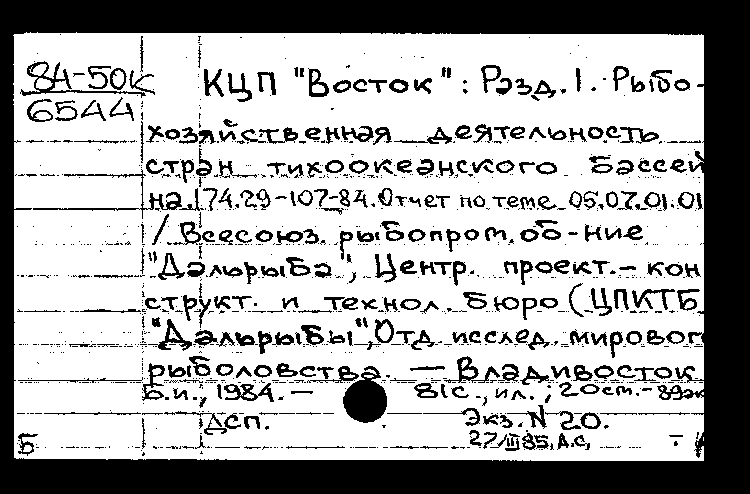 84-50к
6544
КЦП "Восток": Разд. 1. Рыбо-
хозяйственная деятельность
стран тихоокеанского бассей
на. 174.29-107-84. Отчет по теме 05.07.01.01
/ Всесоюз. рыбопром. об-ние
"Дальрыба", Центр. проект.-кон
структ. и технол. бюро (ЦПКТБ
"Дальрыбы", Отд. исслед. мировог
рыболовства. — Владивосток
Б.и., 1984. — 81с., ил.; 20см.- 89эк
ДСП. Экз. N 20.
Б 27/III 85, А.С,